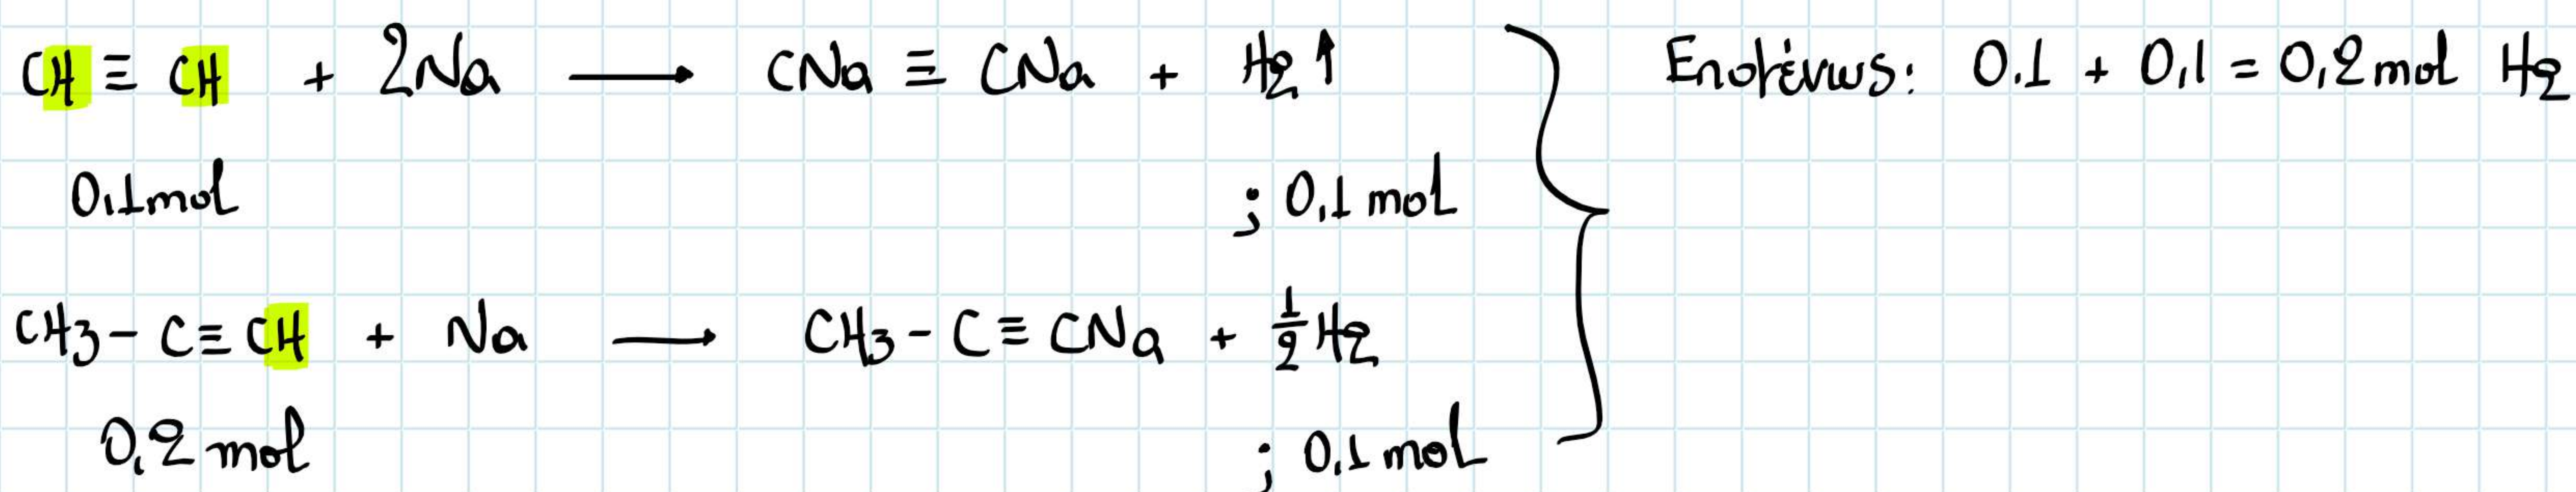 CH ≡ CH + 2Na → CNa ≡ CNa + H2 ↑
0,1mol ; 0,1 mol
CH3 - C ≡ CH + Na → CH3 - C ≡ CNa + 1/2 H2
0,2 mol ; 0,1 mol
Επομένως: 0.1 + 0,1 = 0,2 mol H2